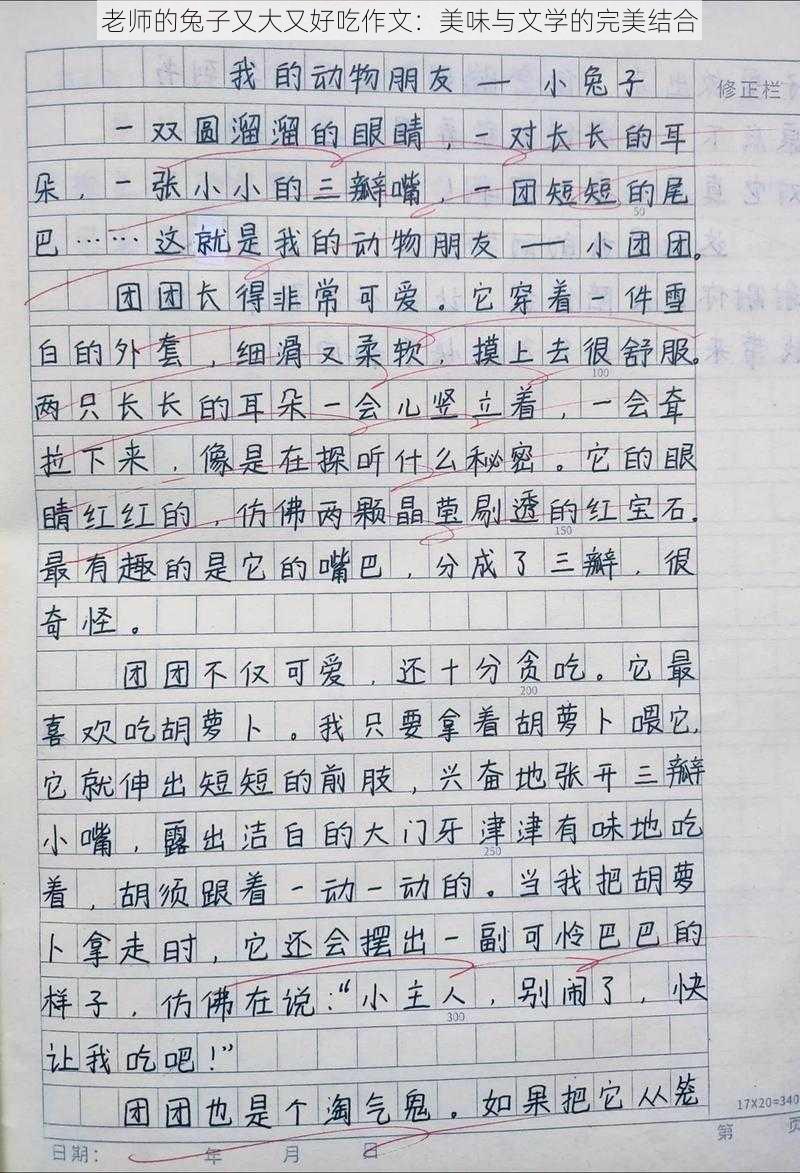 老师的兔子又大又好吃作文：美味与文学的完美结合
我的动物朋友——小兔子
修正栏
一双圆溜溜的眼睛，一对长长的耳
朵，一张小小的三瓣嘴，一团短短的尾
50
巴……这就是我的动物朋友——小团团。
团团长得非常可爱。它穿着一件雪
白的外套，细滑又柔软，摸上去很舒服。
100
两只长长的耳朵一会儿竖立着，一会耷
拉下来，像是在探听什么秘密。它的眼
睛红红的，仿佛两颗晶莹剔透的红宝石。
150
最有趣的是它的嘴巴，分成了三瓣，很
奇怪。
团团不仅可爱，还十分贪吃。它最
200
喜欢吃胡萝卜。我只要拿着胡萝卜喂它，
它就伸出短短的前肢，兴奋地张开三瓣
小嘴，露出洁白的大门牙津津有味地吃
250
着，胡须跟着一动一动的。当我把胡萝
卜拿走时，它还会摆出一副可怜巴巴的
样子，仿佛在说：“小主人，别闹了，快
300
让我吃吧！”
团团也是个淘气鬼。如果把它从笼
17X20=340
日期： 年 月 日
第 页